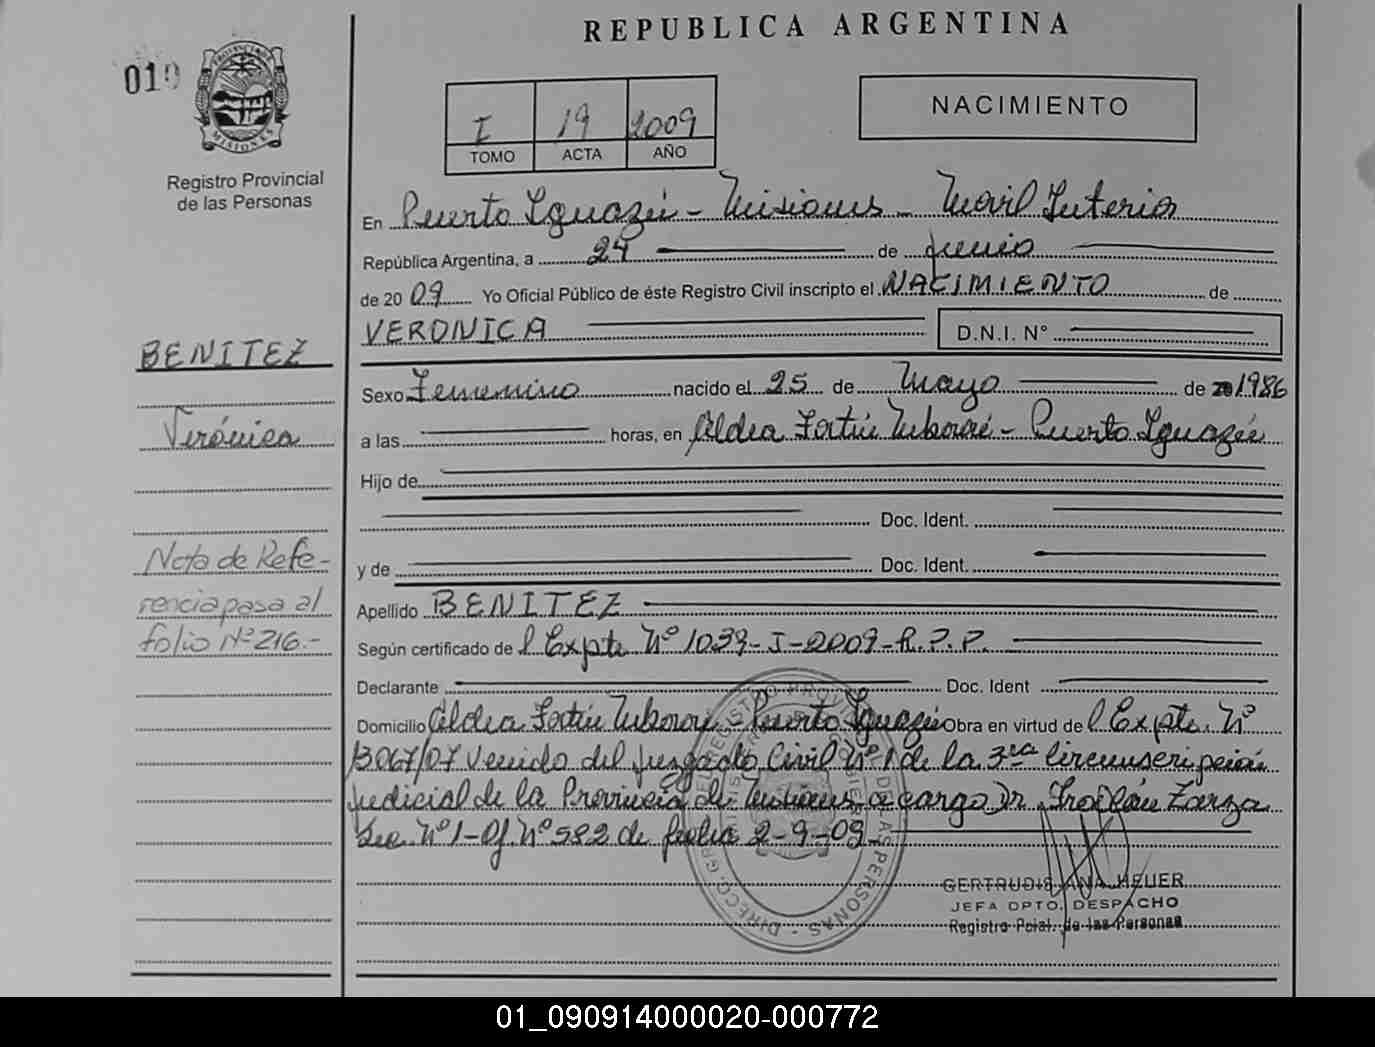 REPUBLICA ARGENTINA
019
MISIONES
Registro Provincial
de las Personas
I 19 2009
TOMO ACTA AÑO
NACIMIENTO
En Puerto Iguazú - Misiones - Movil Interior
República Argentina, a 24 de junio
de 2009 Yo Oficial Público de éste Registro Civil inscripto el NACIMIENTO de
VERONICA D.N.I. N°
BENITEZ
Verónica
Nota de Refe-
rencia pasa al
folio N° 216.-
Sexo Femenino nacido el 25 de Mayo de 20 1986
a las horas, en Aldea Fortín Mbororé - Puerto Iguazú
Hijo de
Doc. Ident.
y de Doc. Ident.
Apellido BENITEZ
Según certificado de l Expte N° 1039-I-2009-R.P.P.
Declarante Doc. Ident
Domicilio Aldea Fortín Mbororé - Puerto Iguazú Obra en virtud de l Expte. N°
3067/07 Venido del Juzgado Civil N° 1 de la 3ra Circunscripción
Judicial de la Provincia de Misiones a cargo Dr. Froilán Zarza
Sec. N° 1-Of. N° 582 de fecha 2-9-09.
GERTRUDIS ANA HEUER
JEFA DPTO. DESPACHO
Registro Pcial. de las Personas
01_090914000020-000772